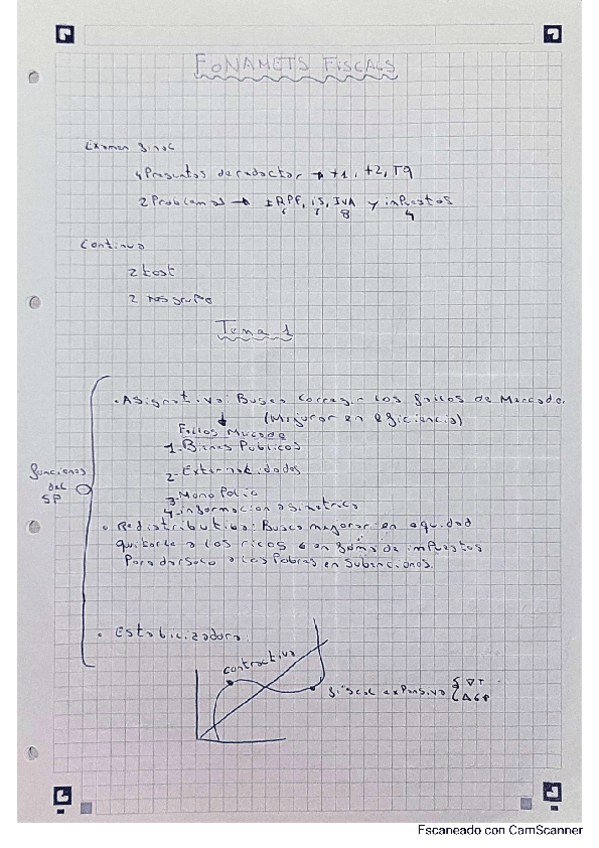 FONAMETS FISCALS
Examen final
4 Preguntas de redactar → t1, t2, T9
2 Problemas → IRPF, IS, IVA y impuestos
6 8 4
Continua
2 test
2 grupo
Tema 1
• Asignativa: Busca corregir los fallos de Mercado.
(Mejorar en eficiencia)
Fallos Mercado
1. Bienes Publicos
2. Externalidades
3. Monopolio
4. informacion asimetrica
funciones
del
SP
• Redistributiva: Busca mejorar en equidad
quitarle a los ricos en forma de impuestos
Para darselo a los Pobres en subenciones.
• Estabilizadora
contractiva
fiscal expansiva { ∇T
ΔGP
Escaneado con CamScanner